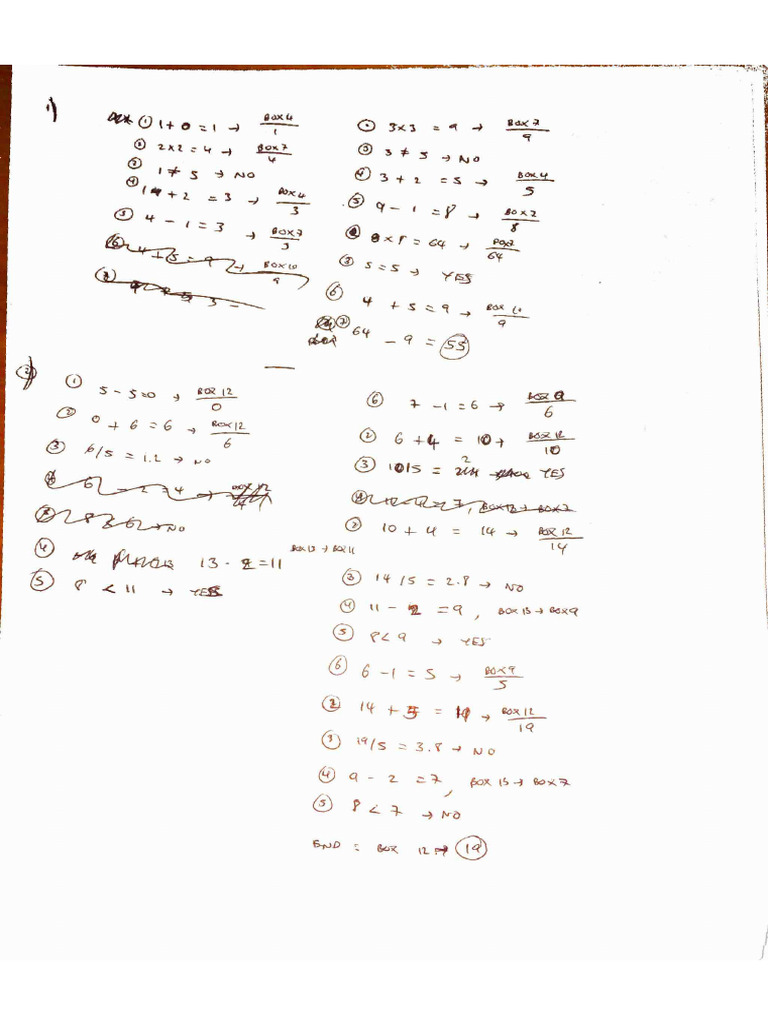 1)
① 1+0 = 1 → BOX 4 / 1
② 2x2 = 4 → BOX 7 / 4
② 1 ≠ 5 → NO
④ 1 + 2 = 3 → BOX 4 / 3
⑤ 4 - 1 = 3 → BOX 7 / 3
⑥ 4 + 5 = 9 → BOX 10 / 9
3 =
② 3x3 = 9 → BOX 7 / 9
③ 3 ≠ 5 → NO
④ 3 + 2 = 5 → BOX 4 / 5
⑤ 9 - 1 = 8 → BOX 7 / 8
8 x 8 = 64 → BOX 7 / 64
③ 5 = 5 → YES
⑥ 4 + 5 = 9 → BOX 10 / 9
⑦ 64 - 9 = 55
2)
① 5 - 5 = 0 → BOX 12 / 0
② 0 + 6 = 6 → BOX 12 / 6
③ 6/5 = 1.2 → NO
6 - 2 = 4 → BOX 12
8 → NO
④ 13 - 2 = 11 BOX 13 → BOX 11
⑤ 8 < 11 → YES
⑥ 7 - 1 = 6 → BOX 9 / 6
② 6 + 4 = 10 → BOX 12 / 10
③ 10/5 = 2 YES
= 7, BOX 13 → BOX 7
② 10 + 4 = 14 → BOX 12 / 14
③ 14/5 = 2.8 → NO
④ 11 - 2 = 9, BOX 13 → BOX 9
⑤ 8 < 9 → YES
⑥ 6 - 1 = 5 → BOX 9 / 5
② 14 + 5 = 19 → BOX 12 / 19
③ 19/5 = 3.8 → NO
④ 9 - 2 = 7, BOX 13 → BOX 7
⑤ 8 < 7 → NO
END = BOX 12 → 19